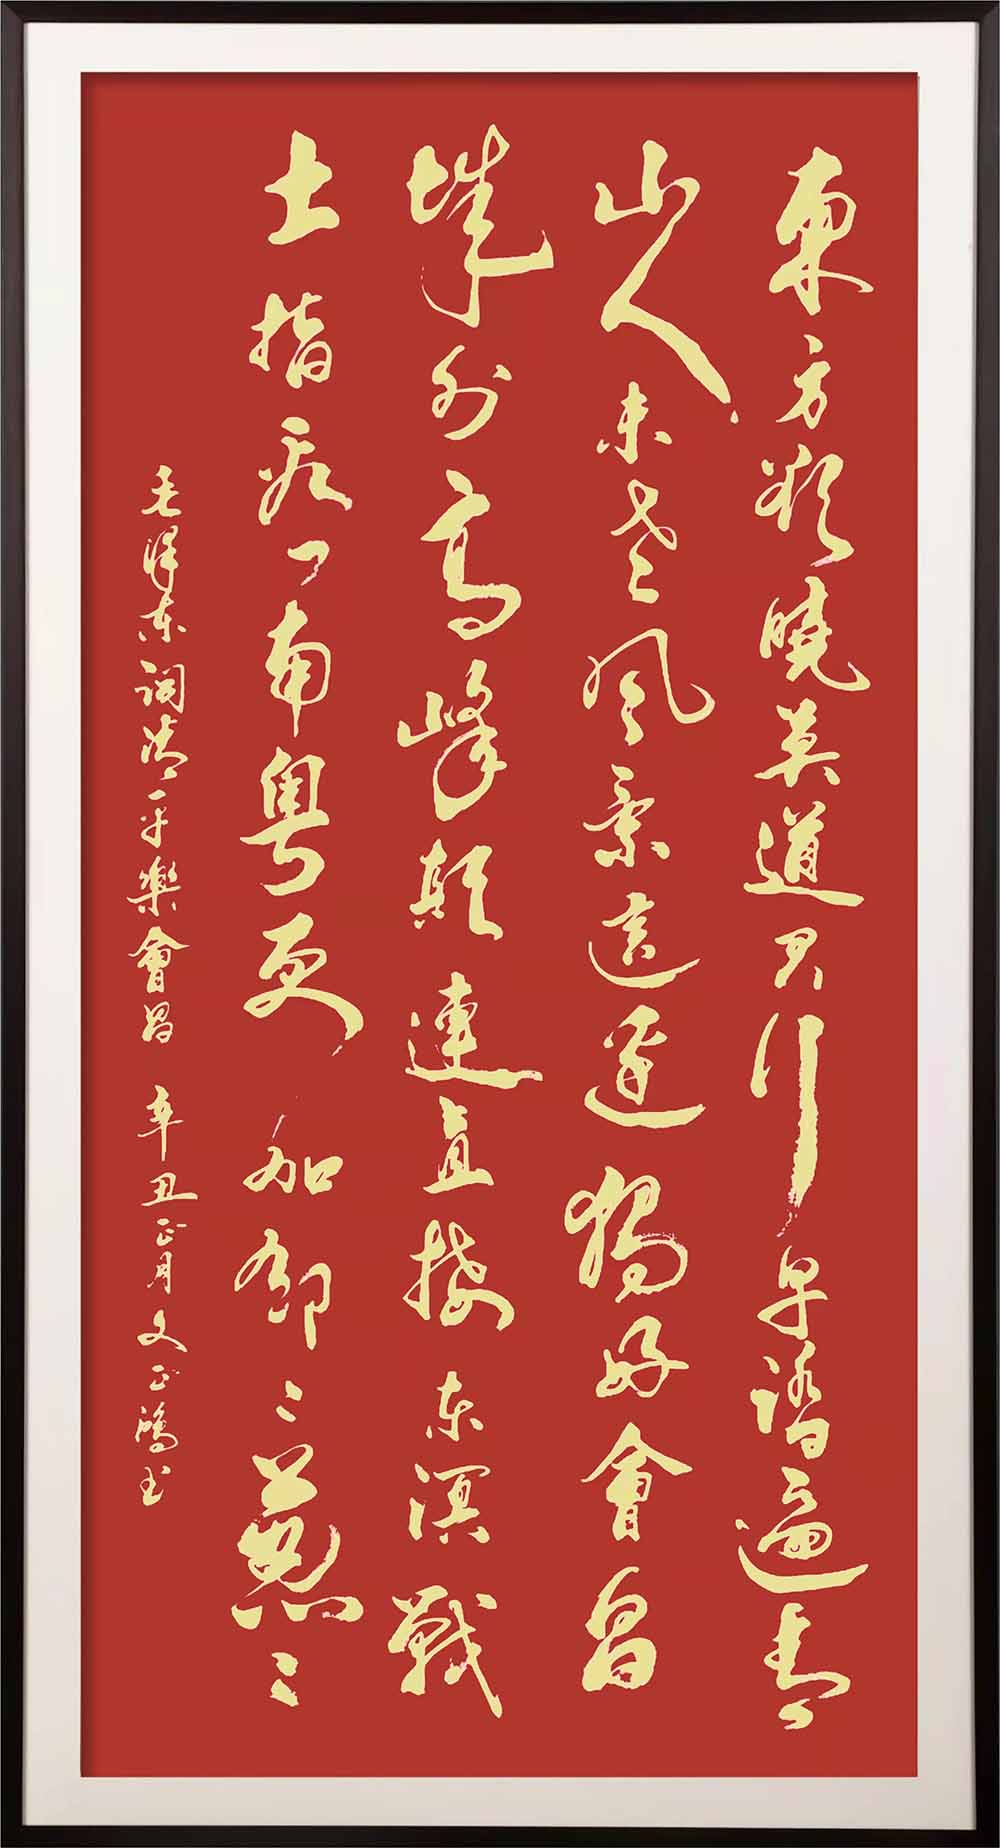 東方欲曉莫道君行早踏遍青
山人未老風景這邊獨好會昌
城外高峰顛連直接东溟戰
士指看南粤更加郁々葱々
毛澤东詞清平樂會昌 辛丑正月文正鴻书